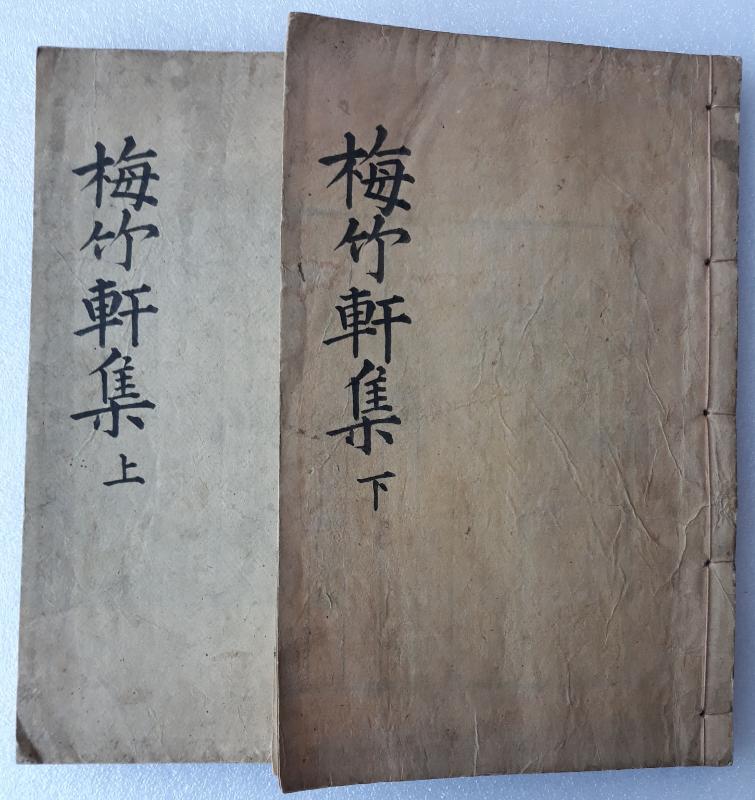 梅竹軒集上
梅竹軒集下